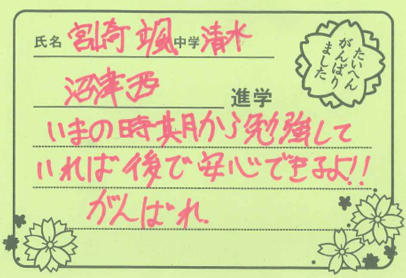 氏名 宮崎 颯 中学 清水
沼津西 進学
いまの時期から勉強して
いれば後で安心できるよ!!
がんばれ.
たいへん
がんばり
ました